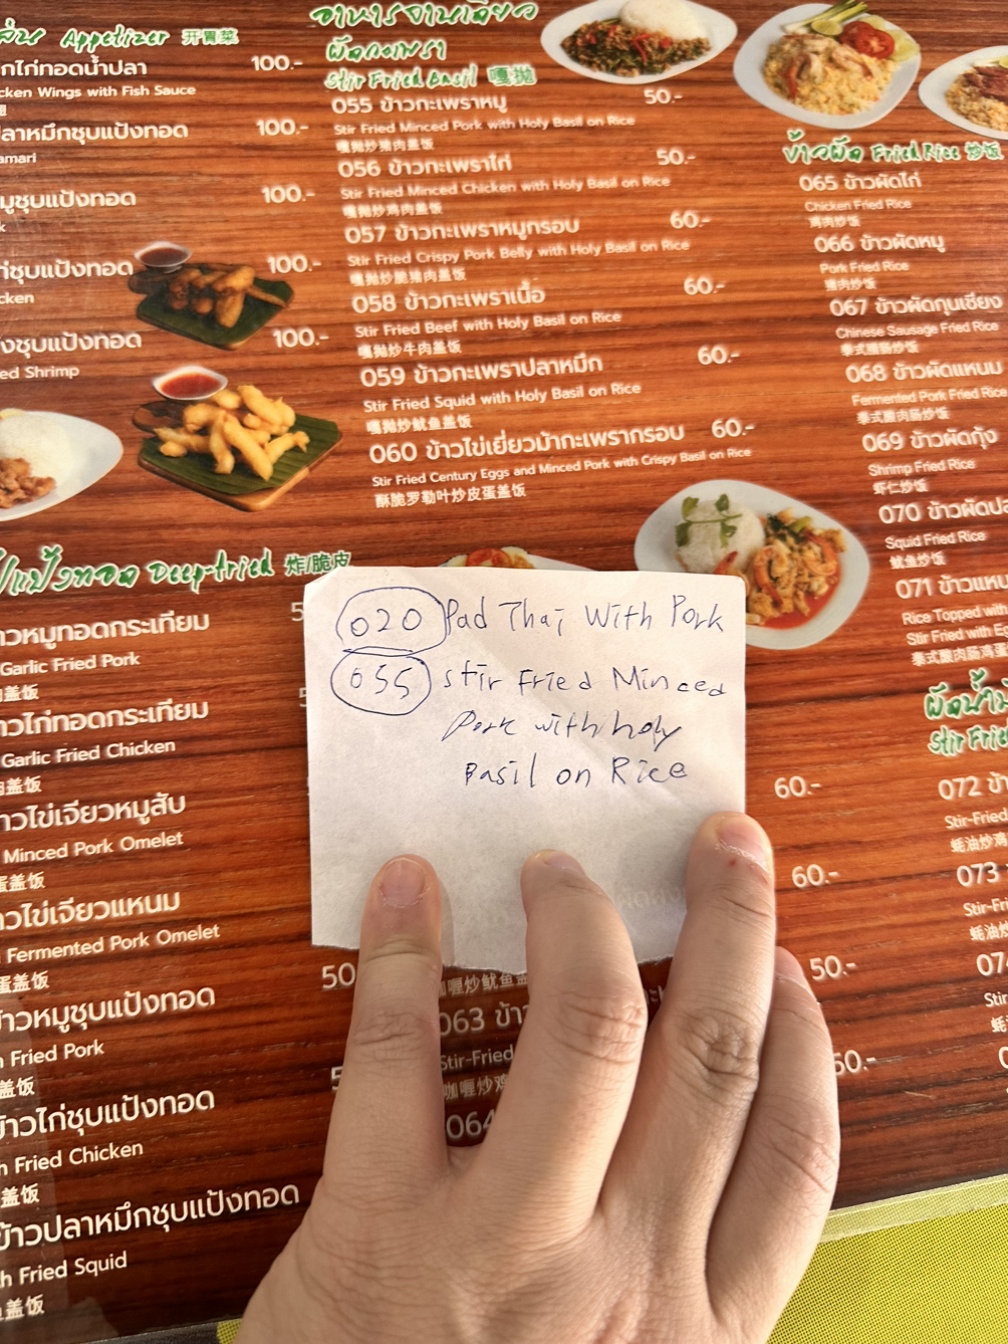 Appetizer 开胃菜
กไก่ทอดน้ำปลา 100.-
cken Wings with Fish Sauce
ลาหมึกชุบแป้งทอด 100.-
amari
หมูชุบแป้งทอด 100.-
k
ก่ชุบแป้งทอด 100.-
cken
้งชุบแป้งทอด 100.-
ed Shrimp
แป้งทอด Deep-fried 炸/脆皮
าวหมูทอดกระเทียม
Garlic Fried Pork
肉盖饭
าวไก่ทอดกระเทียม
Garlic Fried Chicken
肉盖饭
าวไข่เจียวหมูสับ
Minced Pork Omelet
蛋盖饭
าวไข่เจียวแหนม
Fermented Pork Omelet
蛋盖饭
ข้าวหมูชุบแป้งทอด 50
n Fried Pork
盖饭
ข้าวไก่ชุบแป้งทอด 5
h Fried Chicken
盖饭
ข้าวปลาหมึกชุบแป้งทอด
h Fried Squid
盖饭
อาหารจานเดียว
ผัดกะเพรา
Stir Fried Basil 嘎抛
055 ข้าวกะเพราหมู 50.-
Stir Fried Minced Pork with Holy Basil on Rice
嘎抛炒猪肉盖饭
056 ข้าวกะเพราไก่ 50.-
Stir Fried Minced Chicken with Holy Basil on Rice
嘎抛炒鸡肉盖饭
057 ข้าวกะเพราหมูกรอบ 60.-
Stir Fried Crispy Pork Belly with Holy Basil on Rice
嘎抛炒脆猪肉盖饭
058 ข้าวกะเพราเนื้อ 60.-
Stir Fried Beef with Holy Basil on Rice
嘎抛炒牛肉盖饭
059 ข้าวกะเพราปลาหมึก 60.-
Stir Fried Squid with Holy Basil on Rice
嘎抛炒鱿鱼盖饭
060 ข้าวไข่เยี่ยวม้ากะเพรากรอบ 60.-
Stir Fried Century Eggs and Minced Pork with Crispy Basil on Rice
酥脆罗勒叶炒皮蛋盖饭
020 Pad Thai With Pork
055 Stir Fried Minced
Pork with holy
Basil on Rice
60.-
60.-
咖喱炒鱿鱼盖 50.-
063 ข้าว
Stir-Fried
咖喱炒鸡 60.-
064
ข้าวผัด Fried Rice 炒饭
065 ข้าวผัดไก่
Chicken Fried Rice
鸡肉炒饭
066 ข้าวผัดหมู
Pork Fried Rice
猪肉炒饭
067 ข้าวผัดกุนเชียง
Chinese Sausage Fried Rice
泰式腊肠炒饭
068 ข้าวผัดแหนม
Fermented Pork Fried Rice
泰式酸肉肠炒饭
069 ข้าวผัดกุ้ง
Shrimp Fried Rice
虾仁炒饭
070 ข้าวผัดปล
Squid Fried Rice
鱿鱼炒饭
071 ข้าวแหน
Rice Topped with
Stir Fried with E
泰式酸肉肠鸡蛋
ผัดน้ำมั
Stir Fried
072 ข้า
Stir-Fried
蚝油炒鸡
073
Stir-Fri
蚝油炒
074
Stir
蚝